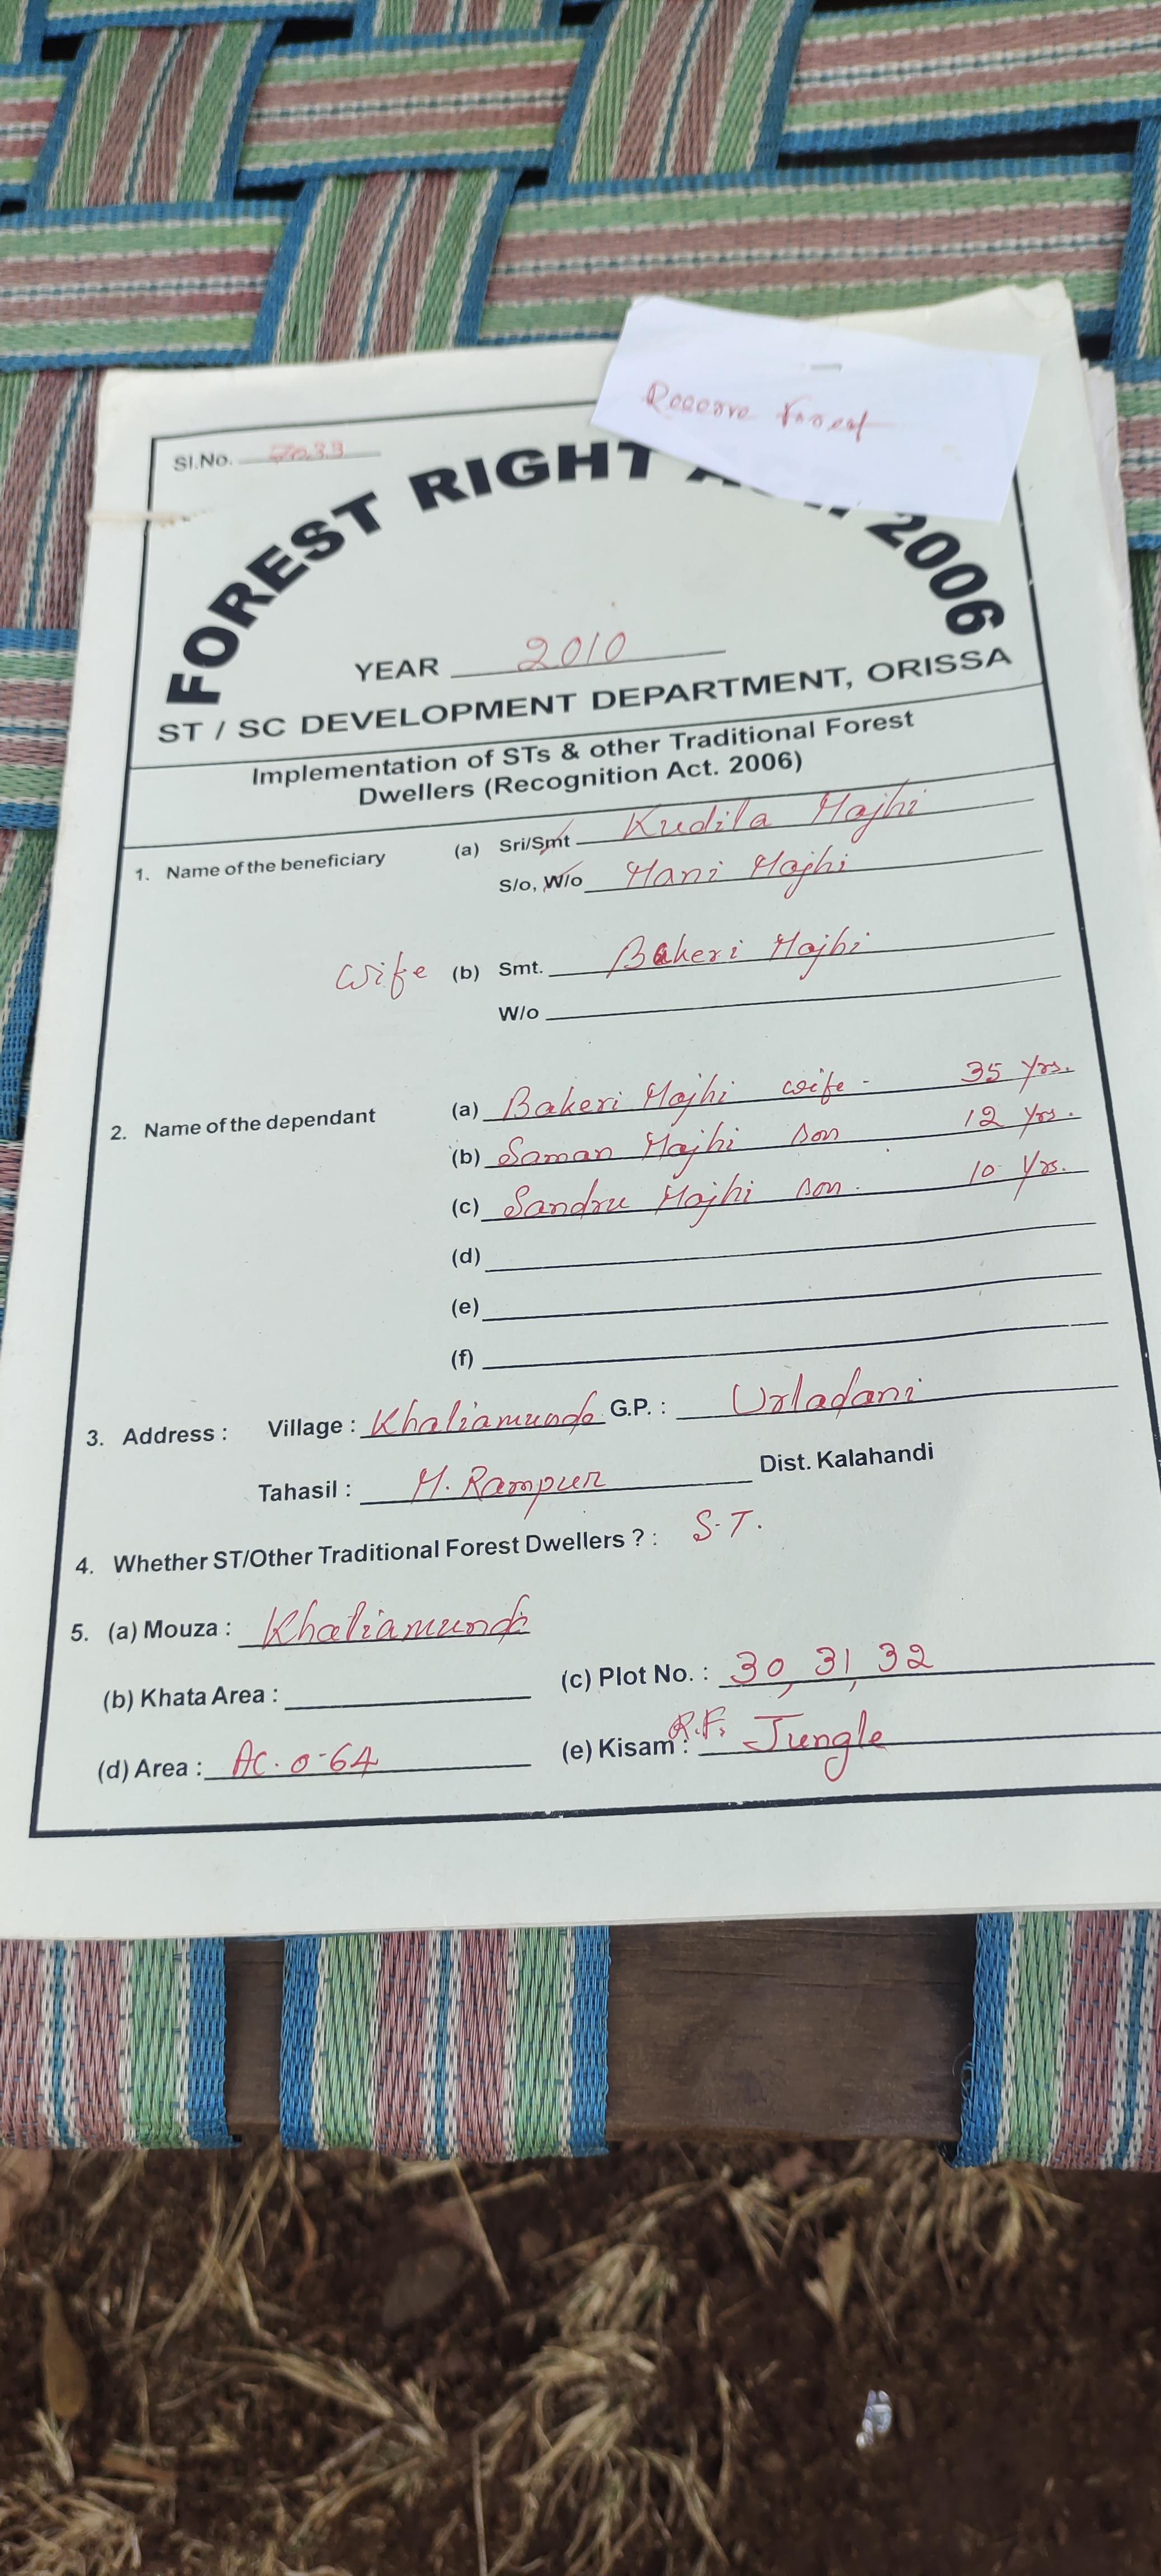 Reserve Forest
Sl.No. 7033
FOREST RIGHT 2006
YEAR 2010
ST / SC DEVELOPMENT DEPARTMENT, ORISSA
Implementation of STs & other Traditional Forest
Dwellers (Recognition Act. 2006)
1. Name of the beneficiary (a) Sri/Smt Kudila Majhi
S/o, W/o Mani Majhi
wife (b) Smt. Bakeri Majhi
W/o
2. Name of the dependant (a) Bakeri Majhi wife - 35 yrs.
(b) Saman Majhi son 12 yrs.
(c) Sandru Majhi son. 10 yrs.
(d)
(e)
(f)
3. Address : Village : Khaliamunda G.P. : Urladani
Tahasil : M. Rampur Dist. Kalahandi
4. Whether ST/Other Traditional Forest Dwellers ? : S.T.
5. (a) Mouza : Khaliamunda
(b) Khata Area : (c) Plot No. : 30, 31, 32
(d) Area : AC. 0-64 (e) Kisam : R.F. Jungle